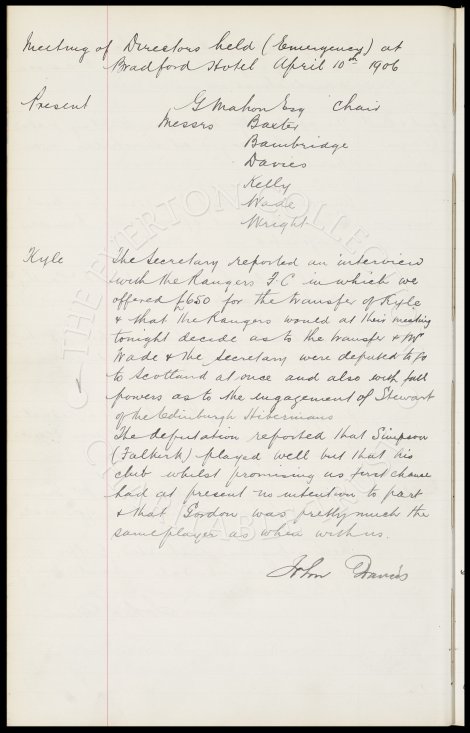 Meeting of Directors held (Emergency) at
Bradford Hotel April 10th 1906
Present G Mahon Esq Chair
Messrs Baxter
Bainbridge
Davies
Kelly
Wade
Wright
Kyle The Secretary reported an interview
with the Rangers F C in which we
offered £650 for the transfer of Kyle
& that the Rangers would at their meeting
tonight decide as to the transfer & Mr
Wade & the Secretary were deputed to go
to Scotland at once and also with full
powers as to the engagement of Stewart
of the Edinburgh Hibernians
The deputation reported that Simpson
(Falkirk) played well but that his
club whilst promising us first chance
had at present no intention to part
& that Gordon was pretty much the
same player as when with us.
John Davies
THE EVERTON COLLECTION